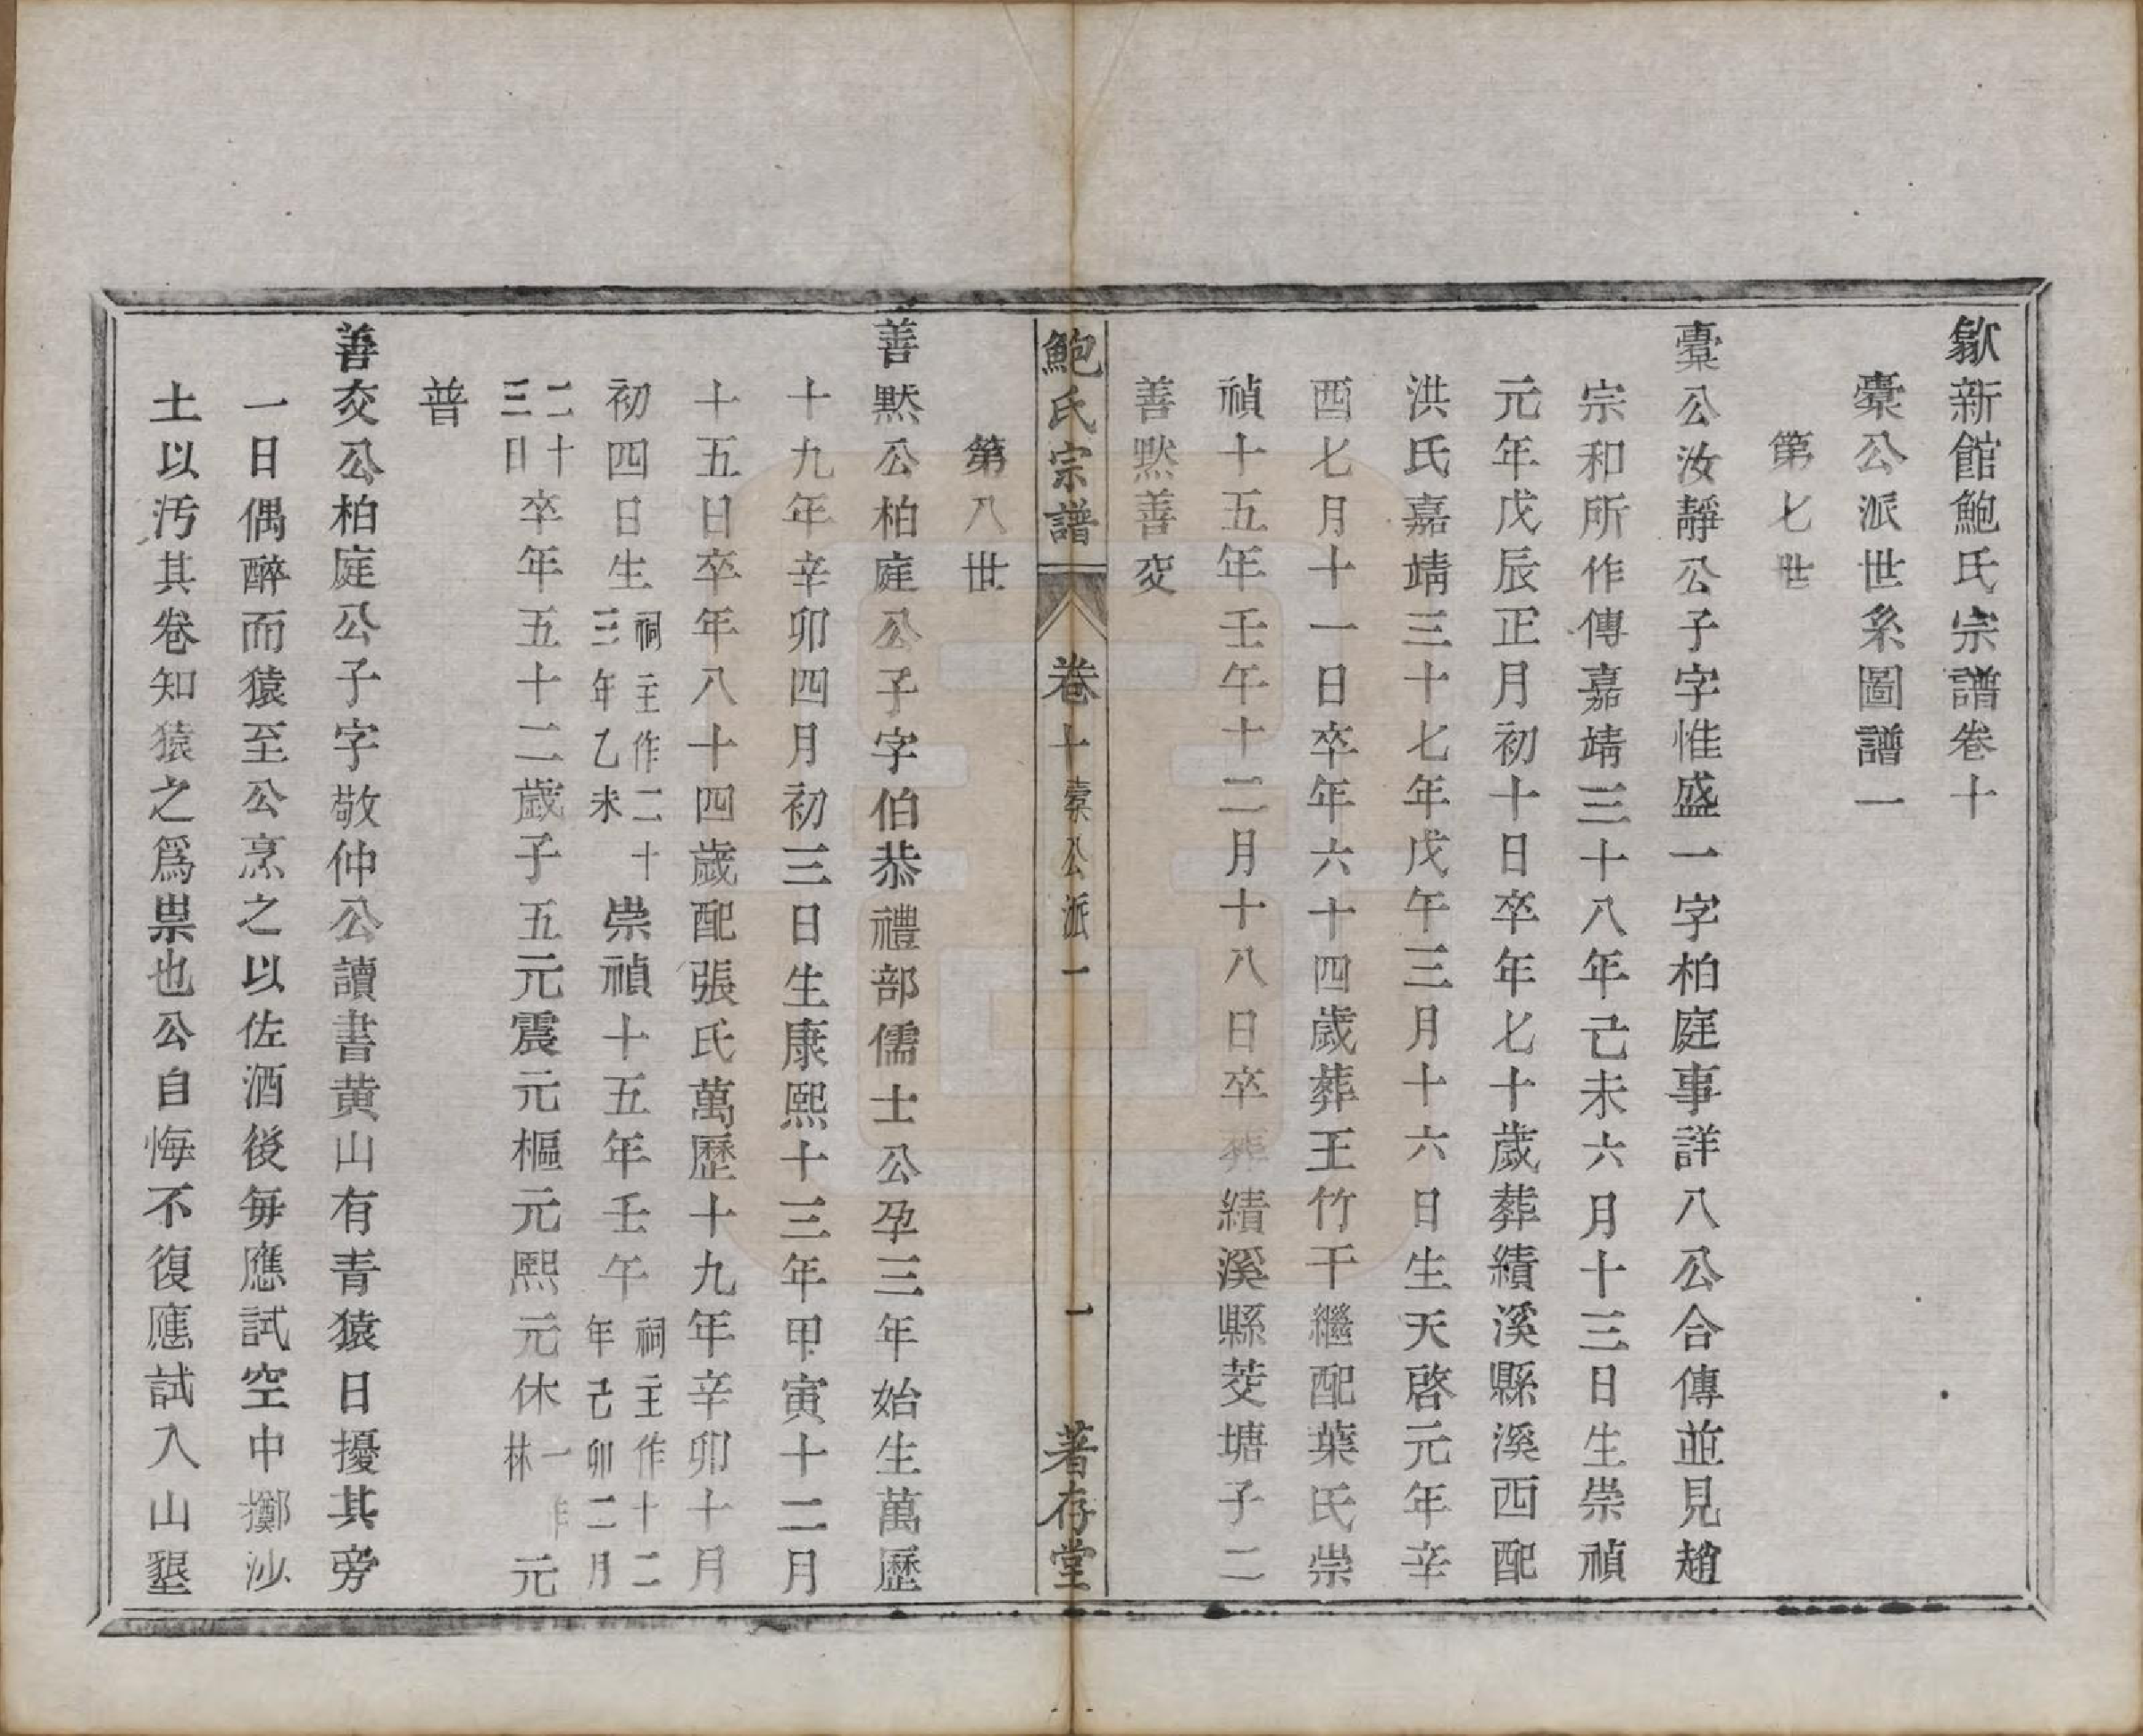 歙新館鮑氏宗譜卷十
橐公派世系圖譜一
第七世
橐公汝靜公子字惟盛一字柏庭事詳八公合傳並見趙
宗和所作傳嘉靖三十八年己未六月十三日生崇禎
元年戊辰正月初十日卒年七十歲葬績溪縣溪西配
洪氏嘉靖三十七年戊午三月十六日生天啓元年辛
酉七月十一日卒年六十四歲葬王竹干繼配葉氏崇
禎十五年壬午十二月十八日卒葬績溪縣茭塘子二
善黙善交
鮑氏宗譜 卷十 橐公派一 一 著存堂
第八世
善黙公柏庭公子字伯恭禮部儒士公孕三年始生萬歷
十九年辛卯四月初三日生康熙十三年甲寅十二月
十五日卒年八十四歲配張氏萬歷十九年辛卯十月
初四日生祠主作二十三年乙未崇禎十五年壬午祠主作十二年己卯二月
二十三日卒年五十二歲子五元震元樞元熙元休一作林元
普
善交公柏庭公子字敬仲公讀書黄山有青猿日擾其旁
一日偶醉而猿至公烹之以佐酒後每應試空中擲沙
土以汚其卷知猿之爲祟也公自悔不復應試入山墾